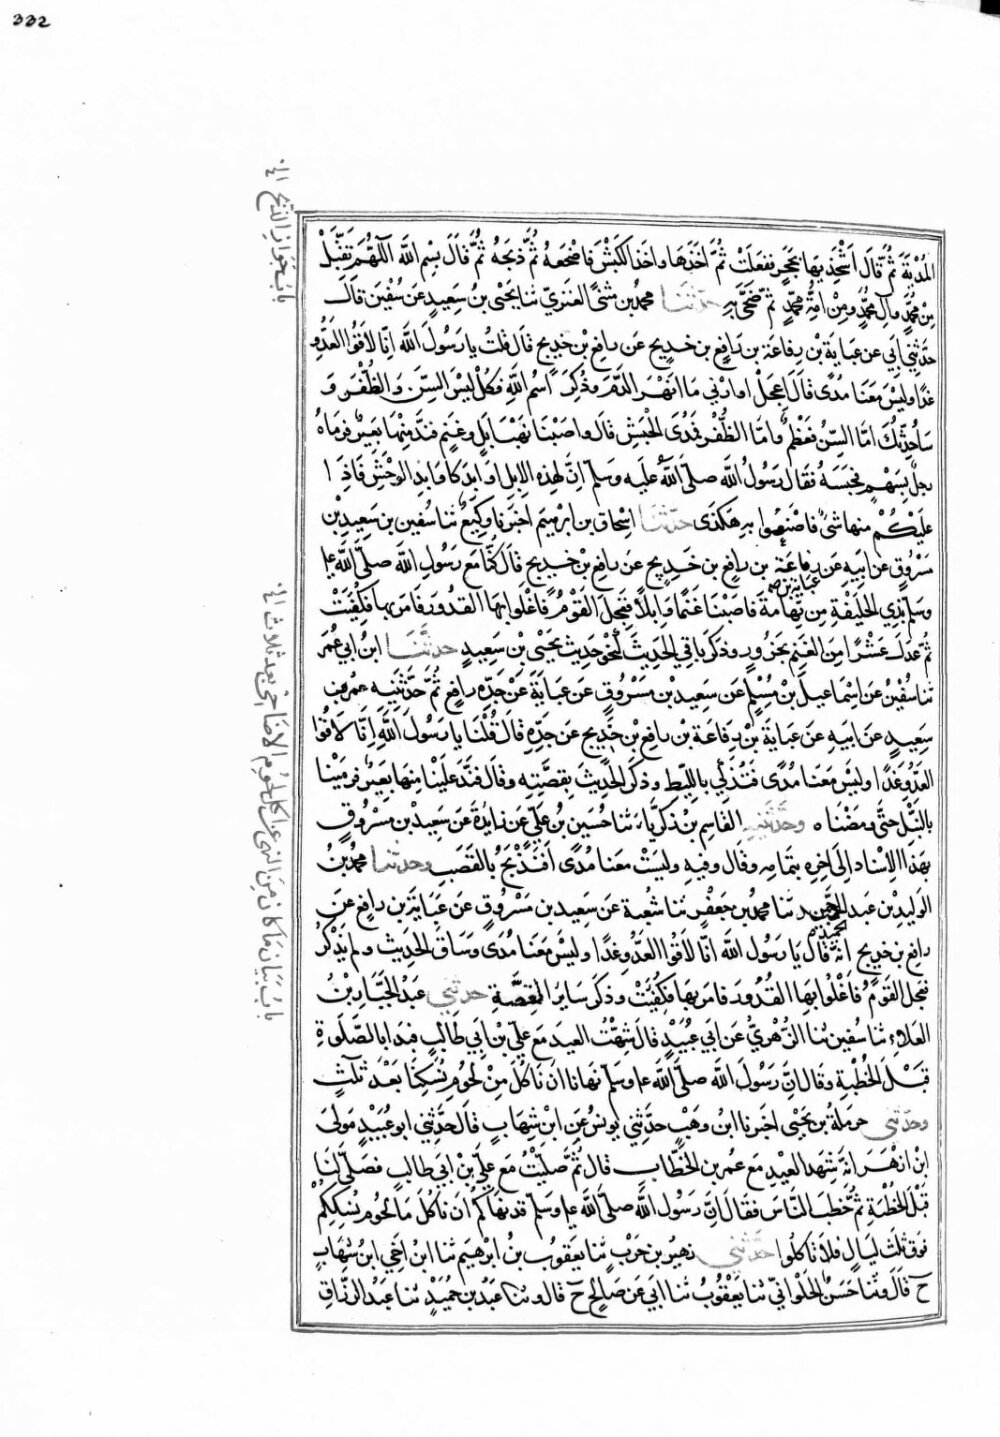 332
باب جواز الذبح
المُدْيَةَ ثُمَّ قَالَ اَشْحَذِيهَا بِحَجَرٍ ففعلتْ ثمّ اَخَذَهَا واخذ الكَبْشَ فاضجَعهُ ثُمَّ ذبحَهُ ثُمَّ قالَ بِسْمِ اللهِ اللّهُمّ تَقَبَّلْ
مِن محمّدٍ وآلِ محمّدٍ ومن امّةِ محمّدٍ ثمّ ضحّى بِهِ حدّثنا محمد بن مثنى العنزيّ ثنا يَحْيَى بنُ سَعِيدٍ عَن سُفْيَن قالَ
حدّثني اَبِي عن عَبايَةَ بْنِ رِفاعَةَ بن رَافِع بنِ خَدِيجٍ عن رافِع بْنِ خَدِيجٍ قال قلتُ يا رَسُولَ اللهِ اِنّا لاقُوا العَدُوِّ
غدًا وليسَ مَعَنا مُدًى قالَ اعجلْ او ارْنِي ما انهر الدّمَ وذُكِرَ اسم اللهِ فكُلْ ليسَ السِنّ والظُفْرَ و
سَاُحدّثكَ امّا السِّنُّ فعظمٌ وامّا الظُّفْرُ فمُدَى الحَبَش قال واصبْنا نَهْبَ اِبِلٍ وغَنَمٍ فندَّ مِنْهَا بعيرٌ فرماهُ
رجلٌ بِسَهْمٍ فحبسَهُ فقال رَسُولُ الله صلّى اللهُ عليه وسلم اِنّ لهذهِ الاِبِلِ اوابِدَ كاوابِدِ الوحْشِ فاذا
غلبكُمْ منها شيءٌ فاصْنَعُوا بهِ هكذى حدّثنا اسحاق بن ابرهيم اخبرنا وكِيعٌ ثنا سفين بن سَعِيدِ بْن
مَسْروقٍ عَن ابيه عن عباية بن رفاعة بن رافع بن خديج عن رافع بْن خديجٍ قال كنّا مع رَسُولِ الله صلّى الله عليه
وسلم بذي الحليفةِ من تِهامة فاصَبْنا غَنَمًا واِبِلًا فعجلَ القَوْمُ فاَغْلَوا بِهَا القدُورَ فامرَ بها فكفِئتْ
ثمّ عدلَ عَشْرًا مِنَ الغنمِ بجزُورٍ وذكر باقي الحَدِيثَ لنحوِ حديثِ يَحْيَى بْن سَعِيدٍ حدّثنا ابن ابي عُمَر
ثنا سُفْينُ عن اسماعيل بْنِ مُسْلِمٍ عَن سَعِيدِ بْنِ مَسْرُوقٍ عَن عَبايَةَ عَن جدّهِ رافِعٍ ثُمَّ حدّثنِيهِ عمر بن
سَعِيدٍ عن ابيهِ عن عَبايةَ بْنِ رِفاعَةَ بْن رافِع بْن خَدِيج عَن جدّه قال قُلْنا يا رَسُولَ اللهِ اِنّا لاقُوا
العَدُوِّ غدًا وليسَ مَعَنا مُدًى فَنُذَكِّي بالليطِ وذكر الحدِيثَ بقصّتِهِ وقال فندّ علينا منها بعيرٌ فرمينا
بالنَّبْلِ حتّى وهصْنَاه وحدّثنيه القاسم بن زكريّاء ثنا حُسَين بنُ علِيّ عن زايدَةَ عَن سَعِيدِ بن مَسْرُوقٍ
بهذا الاِسْنادِ اِلى آخِرِهِ بتمامِهِ وقال وفيهِ وليستْ معنا مُدًى اَفَنَذْبَحُ بالقَصَبِ وحدثنا محمدُ بْنُ
الوليدِ بْنِ عبد الحميد ثنا محمد بن جَعْفَرٍ ثنا شعبة عن سعِيد بن مَسْرُوقٍ عن عَبايَةَ بن رافِعٍ عن
رافِع بن خديجٍ انّهُ قال يا رَسُولَ الله انّا لاقُوا العدُوِّ غدًا وليسَ مَعَنا مُدًى وساقَ الحَدِيث ولم يَذْكُرْ
فعجل القَوْمُ فاَغْلَوا بِها القدُورَ فامرَ بها فكُفِئتْ وذكر سايرَ القِصَّةِ حدّثني عبْدُ الجَبّارِ بْنُ
العَلاءِ ثنا سفين ثنا الزُّهْرِيُّ عَن ابي عُبَيْدٍ قال شَهِدْتُ العيدَ مَعَ علِيّ بْن اَبِي طالِبٍ فبدا بالصَّلوةِ
قبلَ الخُطْبةِ وقال انَّ رَسُولَ الله صلّى الله عليه وسلم نهانا ان ناكُلَ مِنْ لحُومِ نُسُكِنَا بَعْدَ ثلثٍ
وحدثني حرملة بن يَحْيَى اخبرنا ابنُ وهْبٍ حدّثني يونسُ عن ابْنِ شِهابٍ قال حدّثني ابو عُبَيْدٍ مَولَى
ابْن ازهَر انّهُ شَهِدَ العِيدَ مَعَ عمر بن الخَطّابِ قال ثمَّ صَلّيْتُ مَعَ علِيّ بْن ابي طالبٍ فصَلّى لنا
قَبْلَ الخُطْبَةِ ثمَّ خَطبَ النّاسَ فقال اِنَّ رَسُولَ الله صلّى الله عليه وسلم قد نهاكُمْ اَنْ تاكُلوا لحومَ نُسُكِكمْ
فوق ثلث ليَالٍ فلا تاكلُوا حدّثني زهيرُ بن حَرْبٍ ثنا يَعقوبُ بنُ ابْرهيمَ ثنا ابْنُ اَخِي ابنِ شِهابٍ
ح قالَ وثنا حَسَنُ الحَلْوانيّ ثنا يَعْقُوبُ ثنا اَبِي عَن صَالحٍ ح قال وثنا عبْدُ بن حُمَيْدٍ ثنا عَبْدُ الرّزّاقِ
باب بيان ما كان من النهي عن اكل لحوم الاضاحي بعد ثلاث